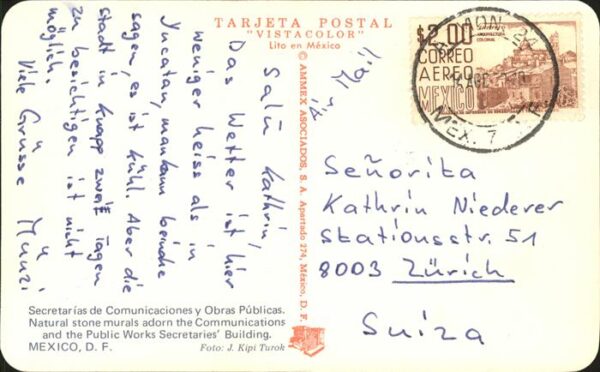 TARJETA POSTAL
"VISTACOLOR"
Lito en México
Salü Kathrin,
Das Wetter ist hier
weniger heiss als in
Yucatan, man kann beinahe
sagen, es ist kühl. Aber die
stadt in knapp zwei Tagen
zu besichtigen ist nicht
möglich.
Viele Grüsse Münzi
© AMMEX ASOCIADOS, S. A. Apartado 274, México, D. F.
$2.00
CORREO
AEREO
MEXICO
ARQUITECTURA
COLONIAL
MEX. 7
Señorita
Kathrin Niederer
Stationsstr. 51
8003 Zürich
Suiza
Secretarías de Comunicaciones y Obras Públicas.
Natural stone murals adorn the Communications
and the Public Works Secretaries' Building.
MEXICO, D. F. Foto: J. Kipi Turok